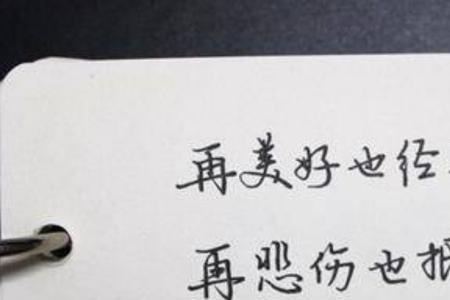 再美好也经
再悲伤也抵